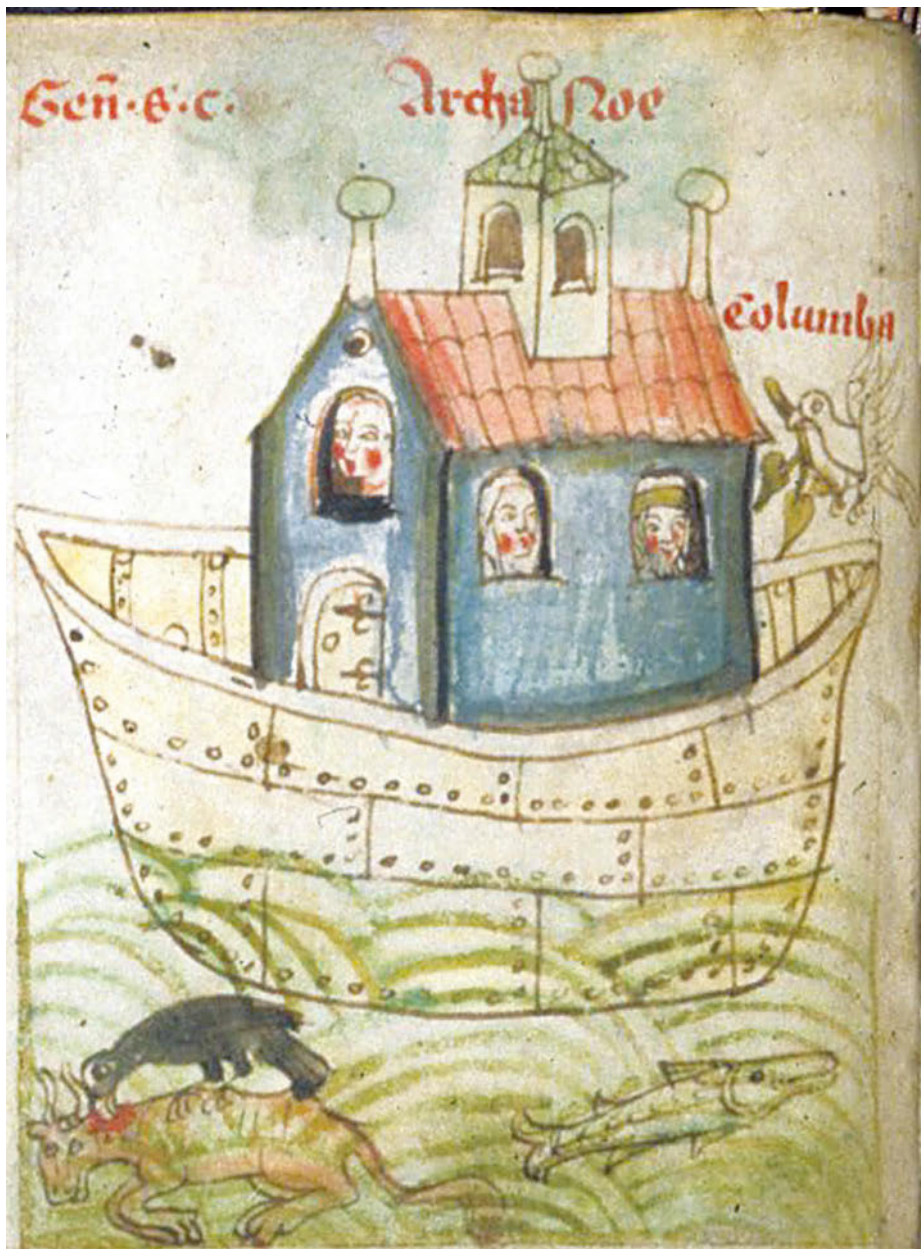 Gen̄·8·c·
Archa Noe
Columba